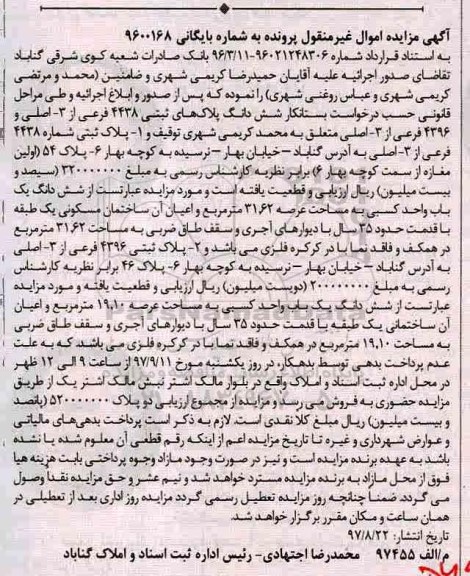 آگهی مزایده اموال غیرمنقول پرونده به شماره بایگانی ۹۶۰۰۱۶۸
به استناد قرارداد شماره ۹۶۰۲۱۲۴۸۳۰۶-۹۶/۳/۱۱ بانک صادرات شعبه کوی شرقی گناباد
تقاضای صدور اجرائیه علیه آقایان حمیدرضا کریمی شهری و ضامنین (محمد و مرتضی
کریمی شهری و عباس روغنی شهری) را نموده که پس از صدور و ابلاغ اجرائیه و طی مراحل
قانونی حسب درخواست بستانکار شش دانگ پلاک‌های ثبتی ۴۴۳۸ فرعی از ۳- اصلی و
۴۳۹۶ فرعی از ۳- اصلی متعلق به محمد کریمی شهری توقیف و ۱- پلاک ثبتی شماره ۴۴۳۸
فرعی از ۳-اصلی به آدرس گناباد –خیابان بهار –نرسیده به کوچه بهار ۶- پلاک ۵۴ (اولین
مغازه از سمت کوچه بهار ۶) برابر نظریه کارشناس رسمی به مبلغ ۳۲۰۰۰۰۰۰۰ (سیصد و
بیست میلیون) ریال ارزیابی و قطعیت یافته است و مورد مزایده عبارتست از شش دانگ یک
باب واحد کسبی به مساحت عرصه ۳۱,۶۲ مترمربع و اعیان آن ساختمان مسکونی یک طبقه
با قدمت حدود ۳۵ سال با دیوارهای آجری و سقف طاق ضربی به مساحت ۳۱,۶۲ مترمربع
در همکف و فاقد نما با در کرکره فلزی می باشد و ۲- پلاک ثبتی ۴۳۹۶ فرعی از ۳- اصلی
به آدرس گناباد – خیابان بهار –نرسیده به کوچه بهار ۶- پلاک ۴۶ برابر نظریه کارشناس
رسمی به مبلغ ۲۰۰۰۰۰۰۰۰ (دویست میلیون) ریال ارزیابی و قطعیت یافته و مورد مزایده
عبارتست از شش دانگ یک باب واحد کسبی به مساحت عرصه ۱۹,۱۰ مترمربع و اعیان
آن ساختمانی یک طبقه با قدمت حدود ۳۵ سال با دیوارهای آجری و سقف طاق ضربی
به مساحت ۱۹,۱۰ مترمربع در همکف و فاقد نما با در کرکره فلزی می باشد. که به علت
عدم پرداخت بدهی توسط بدهکار در روز یکشنبه مورخ ۹۷/۹/۱۱ از ساعت ۹ الی ۱۲ ظهر
در محل اداره ثبت اسناد و املاک واقع در بلوار مالک اشتر نبش مالک اشتر یک از طریق
مزایده حضوری به فروش می رسد و مزایده از مجموع ارزیابی دو پلاک ۵۲۰۰۰۰۰۰۰ (پانصد
و بیست میلیون) ریال مبلغ کلا نقدی است. لازم به ذکر است پرداخت بدهی‌های مالیاتی
و عوارض شهرداری و غیره تا تاریخ مزایده اعم از اینکه رقم قطعی آن معلوم شده یا نشده
باشد به عهده برنده مزایده است و نیز در صورت وجود مازاد وجوه پرداختی بابت هزینه هیا
فوق از محل مازاد به برنده مزایده مسترد خواهد شد و نیم عشر و حق مزایده نقداً وصول
می گردد. ضمناً چنانچه روز مزایده تعطیل رسمی گردد مزایده روز اداری بعد از تعطیلی در
همان ساعت و مکان مقرر برگزار خواهد شد.
تاریخ انتشار: ۹۷/۸/۲۲
م/الف ۹۷۴۵۵ محمدرضا اجتهادی- رئیس اداره ثبت اسناد و املاک گناباد